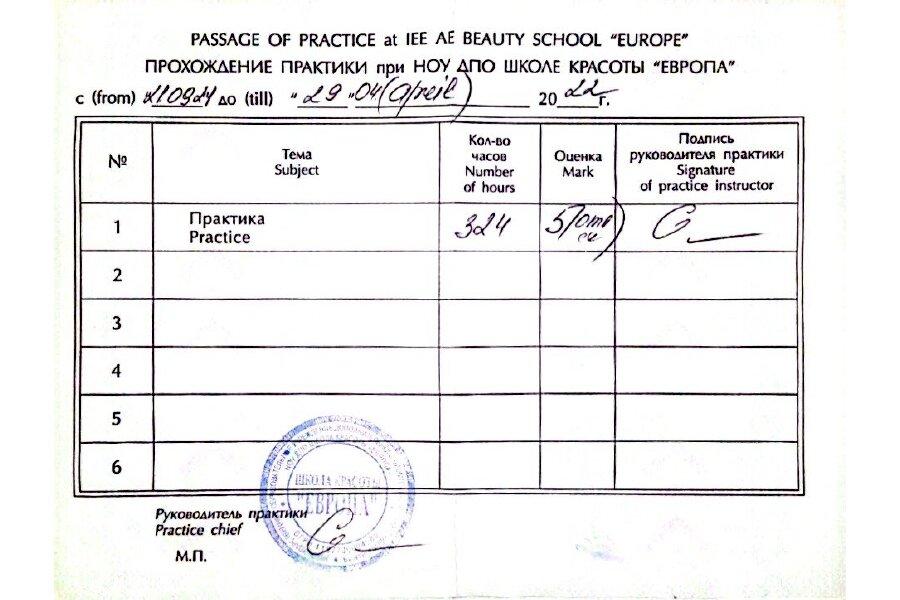 PASSAGE OF PRACTICE at IEE AE BEAUTY SCHOOL "EUROPE"
ПРОХОЖДЕНИЕ ПРАКТИКИ при НОУ ДПО ШКОЛЕ КРАСОТЫ "ЕВРОПА"
с (from) 210921 до (till) "29" 04 (April) 2022 г.
№ Тема Subject Кол-во часов Number of hours Оценка Mark Подпись руководителя практики Signature of practice instructor
1 Практика Practice 324 5 (отл
2
3
4
5
6
ШКОЛА КРАСОТЫ
"ЕВРОПА"
Руководитель практики
Practice chief
М.П.